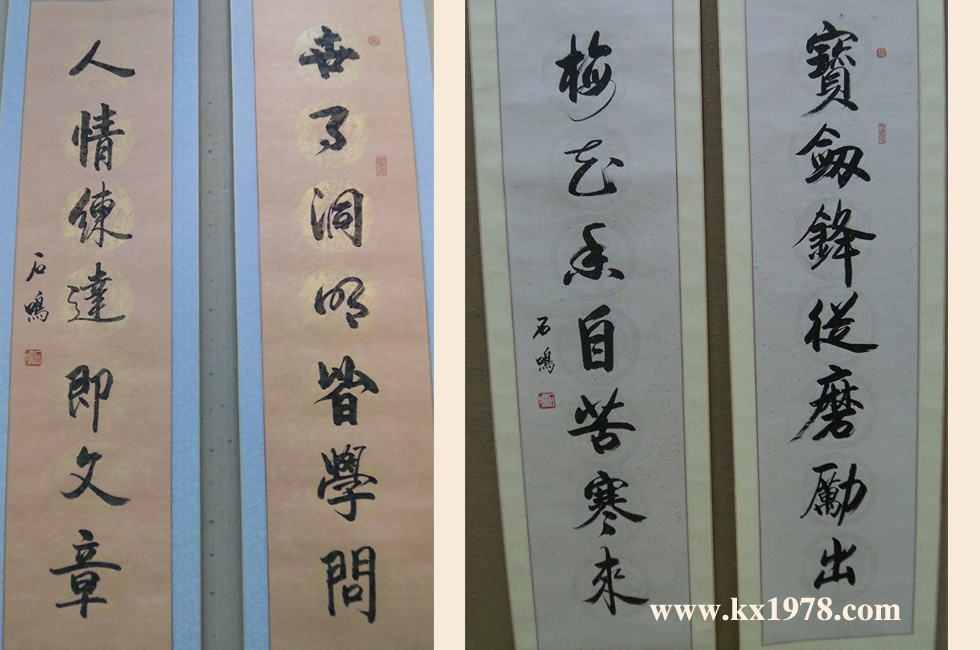 世事洞明皆學問
人情練達即文章
石鳴
寶劔鋒從磨勵出
梅花香自苦寒來
石鳴
www.kx1978.com